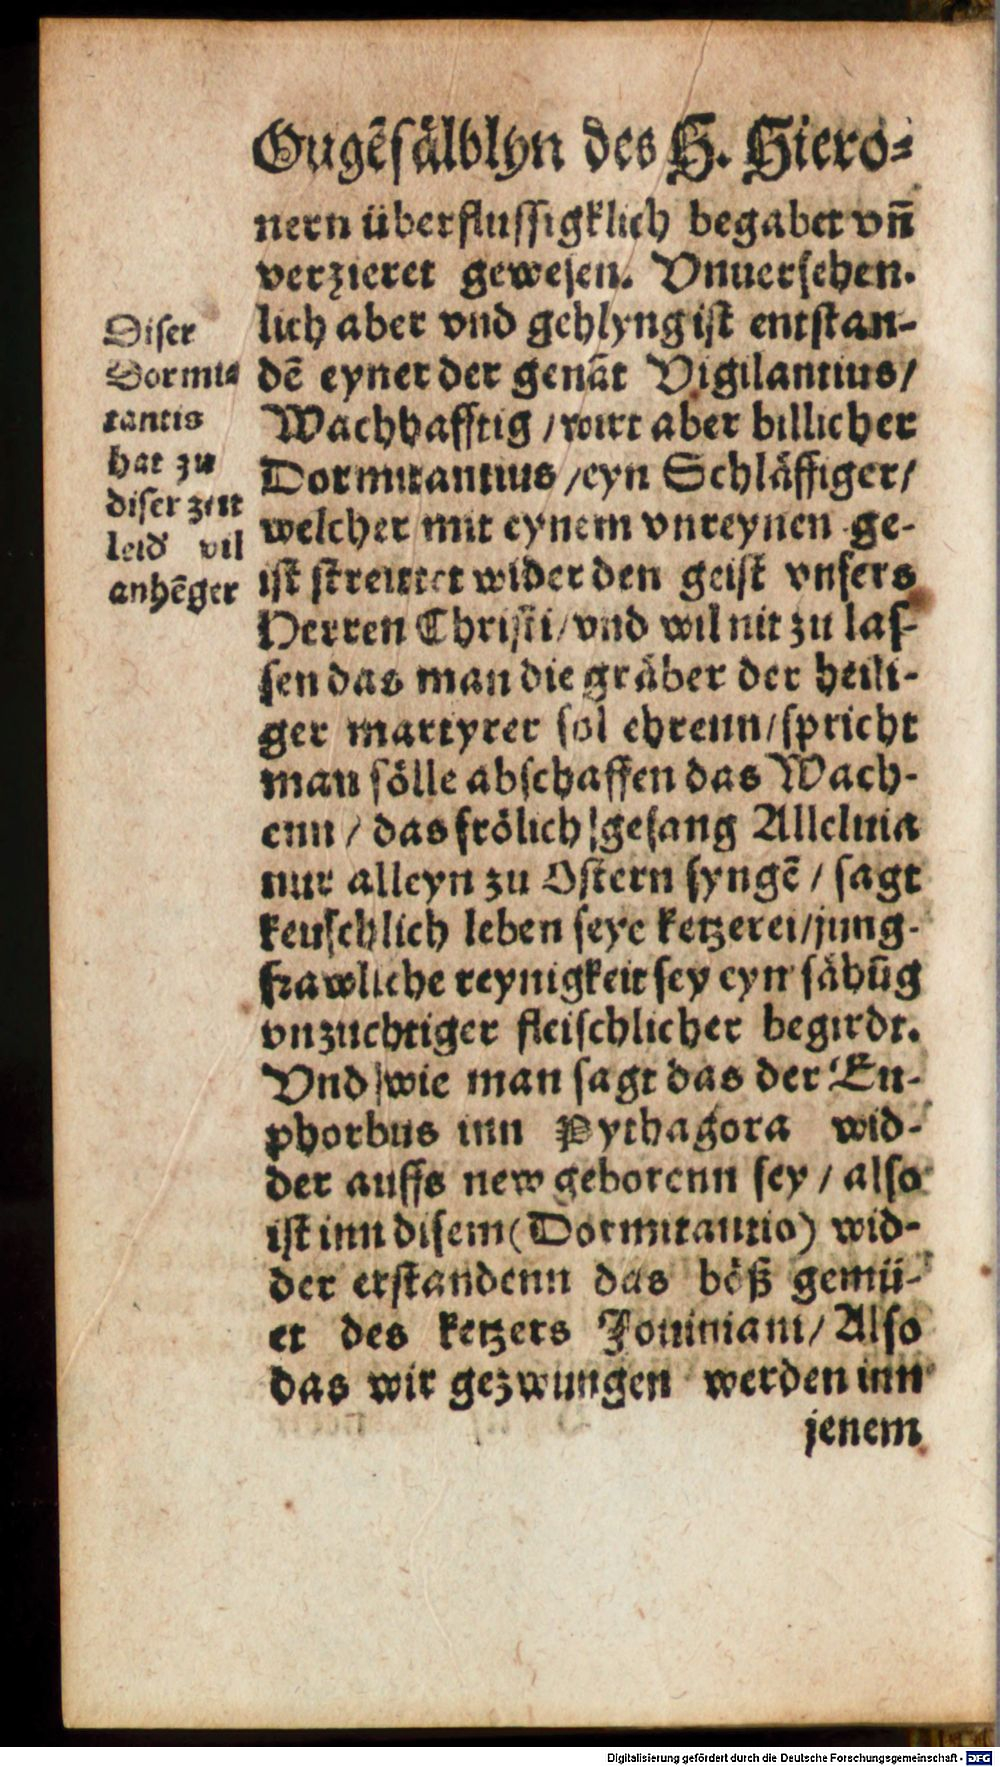 Gugẽsälblyn des H. Hiero⸗
nern überflussigklich begabet vñ
verzieret gewesen. Vnuersehen.
lich aber vnd gehlyng ist entstan-
dẽ eyner der genãt Vigilantius/
Wachhafftig / wirt aber billicher
Dormitantius /eyn Schläffiger/
welcher mit eynem vnreynen ge-
ist streittet wider den geist vnsers
Herren Christi/vnd wil nit zu las-
sen das man die gräber der heili-
ger martyrer sol ehrenn/spricht
man sölle abschaffen das Wach-
enn / das frölich gesang Alleluia
nur alleyn zu Ostern syngẽ / sagt
keuschlich leben seye ketzerei/jung-
frawliche reynigkeit sey eyn sähũg
vnzuchtiger fleischlicher begirdt.
Vnd wie man sagt das der Eu-
phorbus inn Pythagora wid-
der auffs new geborenn sey / also
ist inn disem (Dormitantio) wid-
der erstandenn das böß gemü-
et des ketzers Jouiniani/ Also
das wir gezwungen werden inn
jenem
Diser
Dormi⸗
tantis
hat zu
diser zeit
leid vil
anhẽger
Digitalisierung gefördert durch die Deutsche Forschungsgemeinschaft - DFG